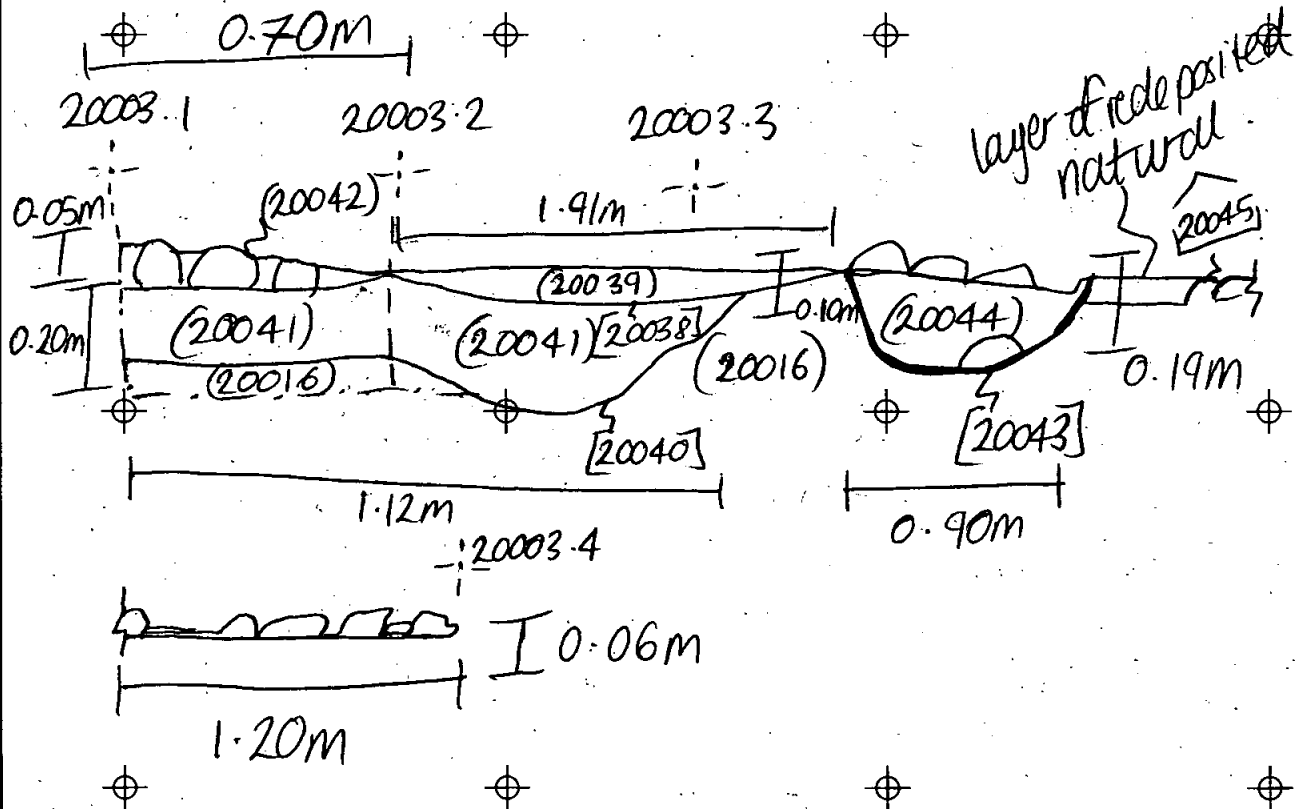 0.70m
20003.1
20003.2
20003.3
layer of redeposited
natural.
0.05m
(20042)
1.91m
20045
(20039)
0.20m
(20041)
(20041)
[20038]
0.10m
(20044)
(20016)
(20016)
0.19m
[20040]
[20043]
1.12m
0.90m
20003.4
0.06m
1.20m